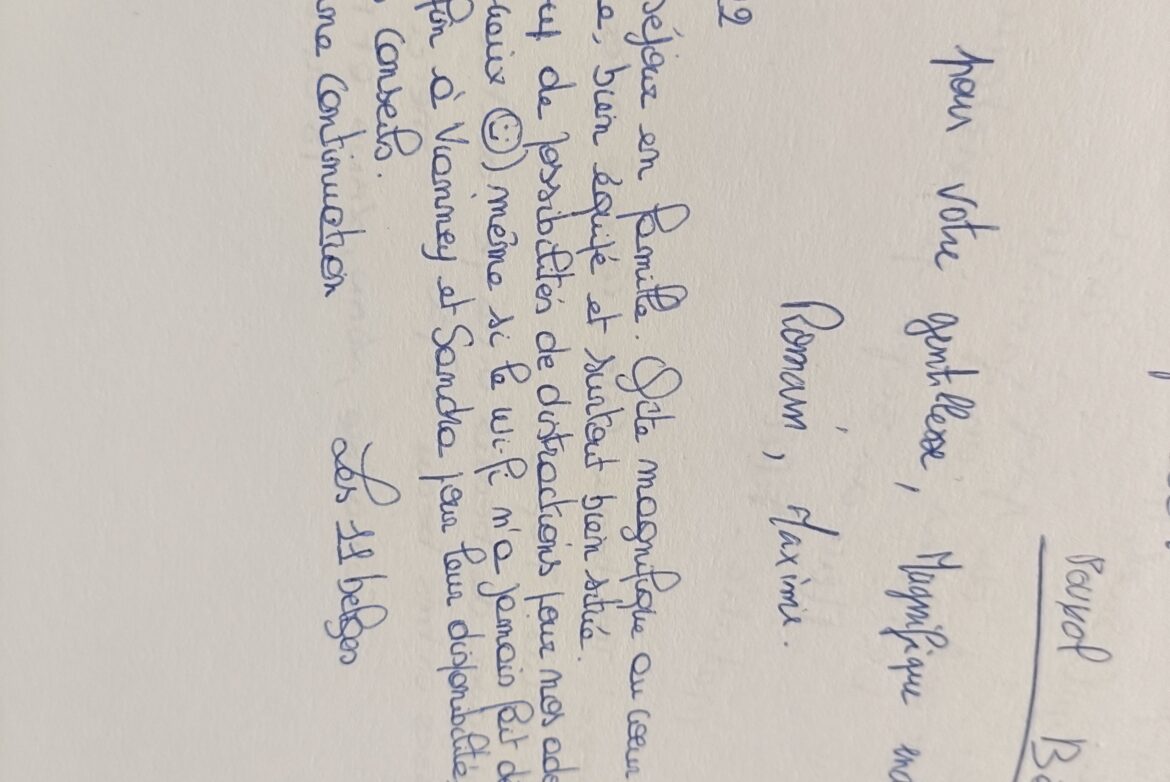 pour votre gentillesse, Magnifique
Romain, Maxime.
22
séjour en famille. Gîte magnifique au cœur
bien équipé et surtout bien situé.
de possibilités de distractions pour nos ado
☺) même si le wi-fi n'a jamais fait d
à Vianney et Sandra pour leur disponibilité
conseils.
continuation Les 11 belges